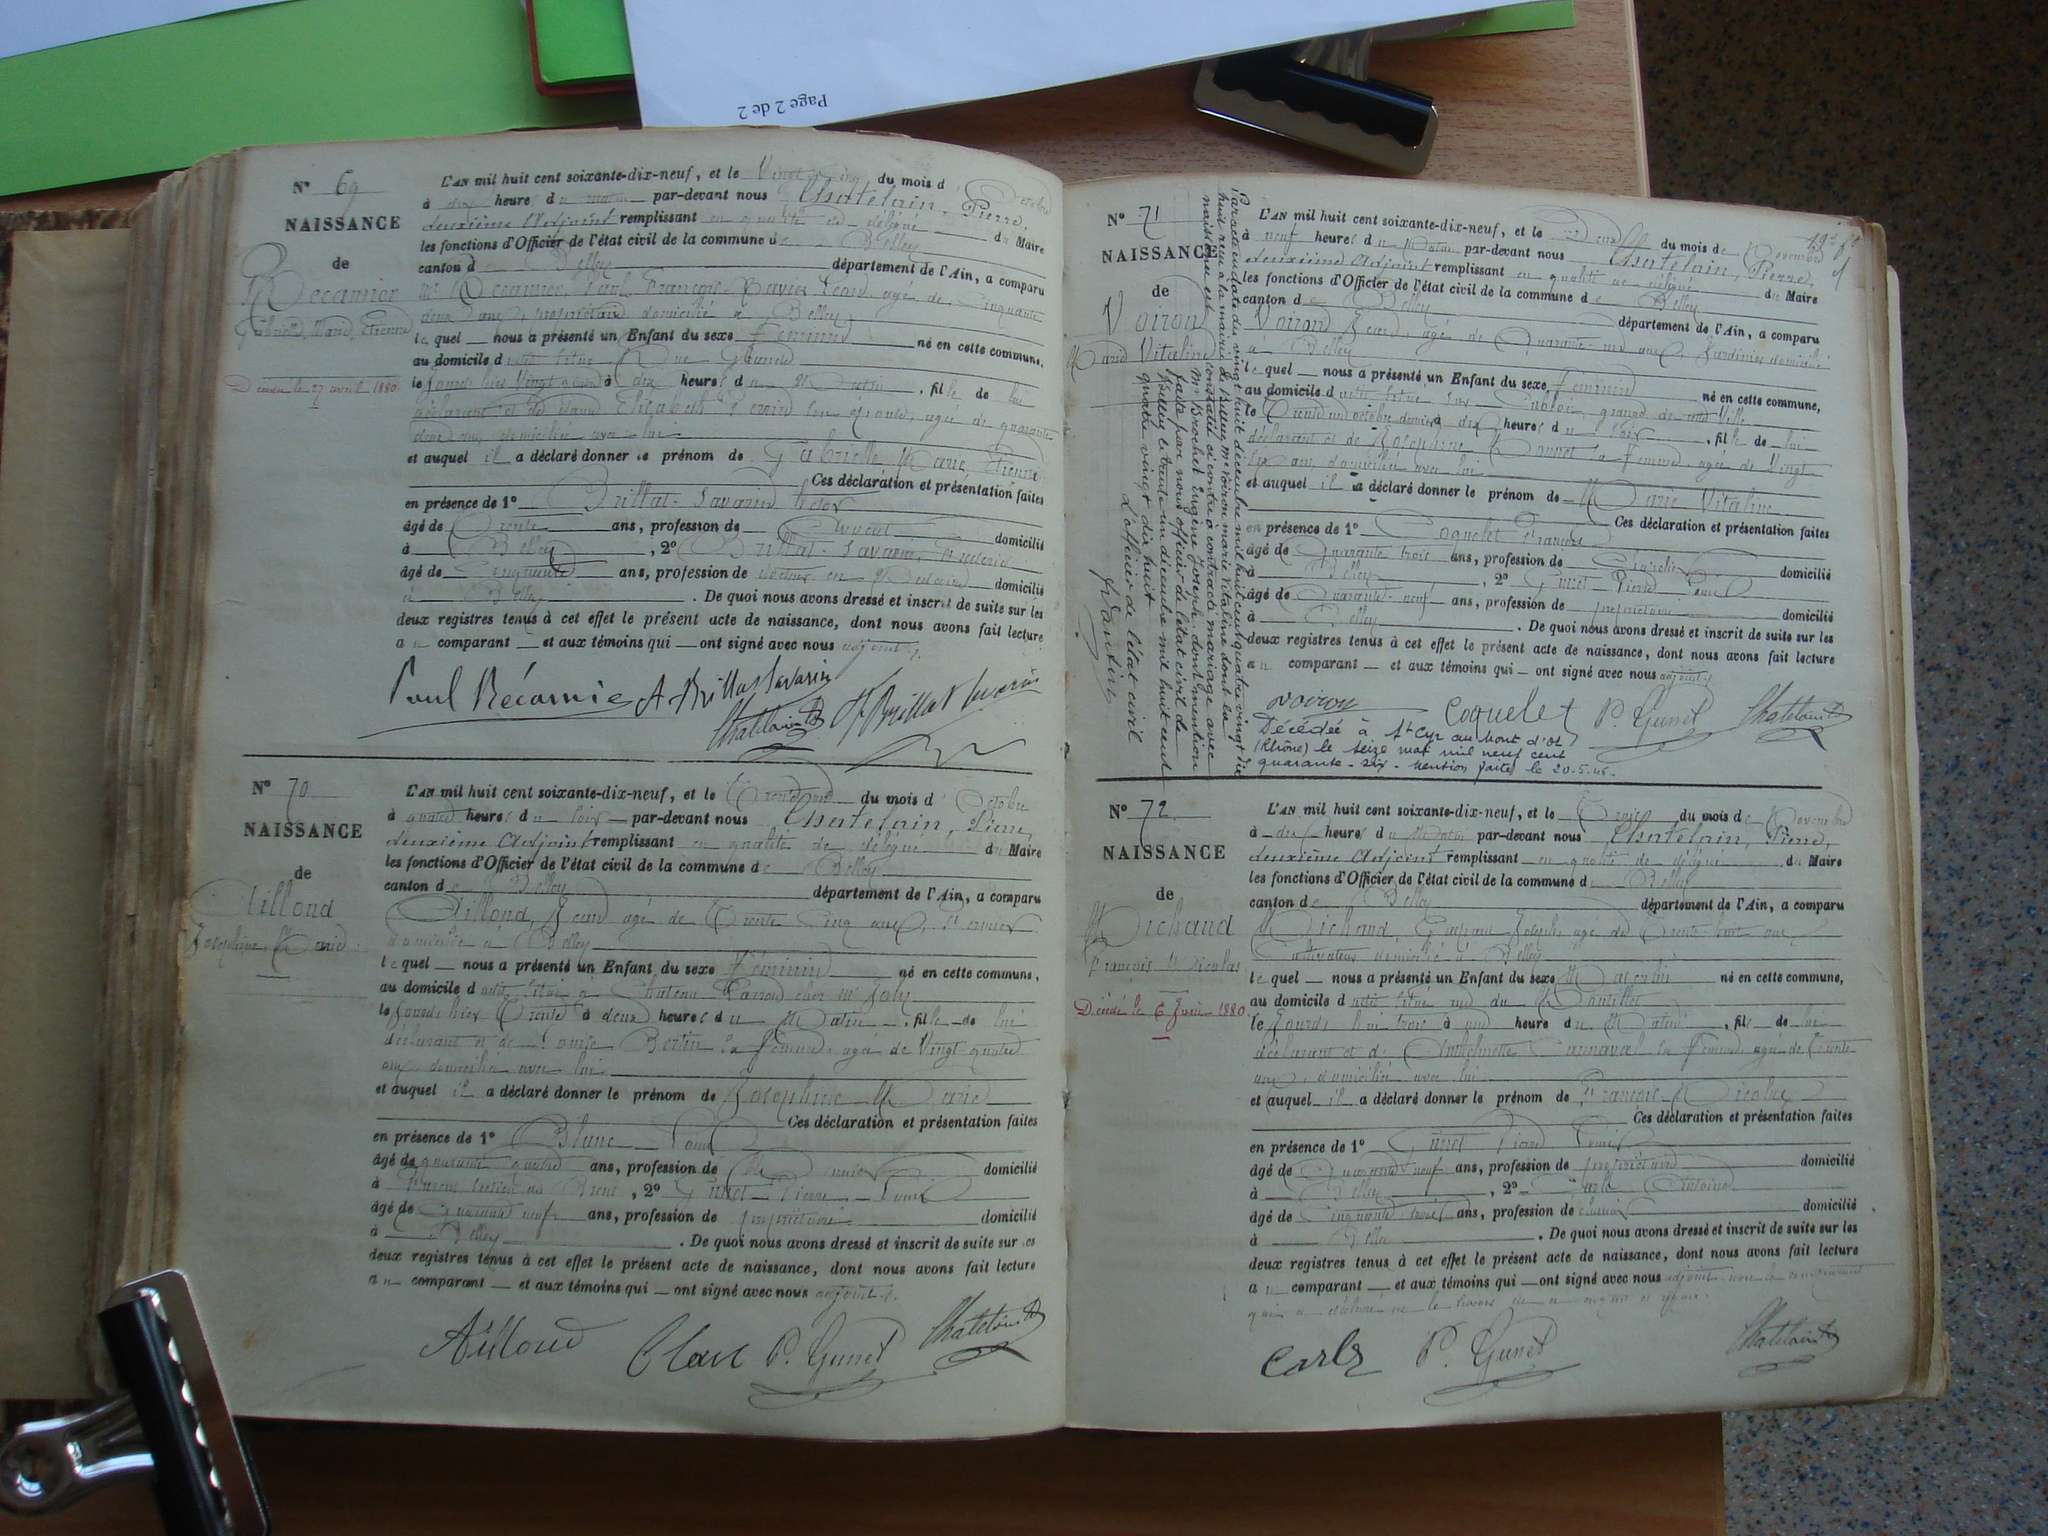 Page 2 de 2
N° 69
NAISSANCE
de
Récamier
Gabrielle, Marie, Etienne
Décédée le 27 avril 1880
L'AN mil huit cent soixante-dix-neuf, et le Vingt cinq du mois d'Octobre
à dix heures du matin par-devant nous Chatelain, Pierre,
deuxième Adjoint remplissant en qualité de délégué du Maire
les fonctions d'Officier de l'état civil de la commune de Belley
canton de Belley département de l'Ain, a comparu
Mr Récamier, Paul, François, Xavier, Léon, agé de Cinquante
deux ans, propriétaire domicilié à Belley
lequel nous a présenté un Enfant du sexe féminin né en cette commune,
au domicile d situé Rue Grande
le hier Vingt à dix heures du Matin, fille de lui
déclarant et de dame Elisabeth son épouse, agée de quarante
deux ans, domiciliée avec lui
et auquel il a déclaré donner le prénom de Gabrielle Marie, Etienne
Ces déclaration et présentation faites
en présence de 1° Brillat-Savarin
âgé de trente ans, profession de Avocat domicilié
à Belley, 2° Brillat-Savarin, Frédéric
âgé de Cinquante ans, profession de docteur en Médecine domicilié
à Belley. De quoi nous avons dressé et inscrit de suite sur les
deux registres tenus à cet effet le présent acte de naissance, dont nous avons fait lecture
au comparant et aux témoins qui ont signé avec nous adjoint
Paul Récamier A Brillat Savarin
Chatelain F. Brillat Savarin
N° 70
NAISSANCE
de
Ailloud
Joséphine, Marie
L'AN mil huit cent soixante-dix-neuf, et le Trente un du mois d'Octobre
à quatre heures du soir par-devant nous Chatelain, Pierre,
deuxième Adjoint remplissant en qualité de délégué du Maire
les fonctions d'Officier de l'état civil de la commune de Belley
canton de Belley département de l'Ain, a comparu
Ailloud, Jean agé de Trente Cinq ans, Fermier
domicilié à Belley
lequel nous a présenté un Enfant du sexe Féminin né en cette commune,
au domicile d situé à chez Mr Joly
le Jour d'hier Trente à deux heures du Matin, fille de lui
déclarant et de Louise Bertin sa femme, agée de Vingt quatre
ans, domiciliée avec lui
et auquel il a déclaré donner le prénom de Joséphine Marie
Ces déclaration et présentation faites
en présence de 1° Blanc Louis
âgé de quarante quatre ans, profession de domicilié
à, 2° Gunet Pierre Louis
âgé de Quarante neuf ans, profession de propriétaire domicilié
à Belley. De quoi nous avons dressé et inscrit de suite sur les
deux registres tenus à cet effet le présent acte de naissance, dont nous avons fait lecture
au comparant et aux témoins qui ont signé avec nous adjoint
Ailloud Blanc P. Gunet Chatelain
N° 71
NAISSANCE
de
Voiron
Marie Vitaline
Par acte en date du vingt huit décembre mil huit cent quatre vingt dix
huit reçu à la mairie de Belley Mlle Voiron marie vitaline dont la
naissance est constatée ci contre a contracté mariage avec
Mr Brochet Eugène Joseph, dont mention
faite par nous officier de l'état civil de
Belley le trente un décembre mil huit cent
quatre vingt dix huit
L'officier de l'état civil
L'AN mil huit cent soixante-dix-neuf, et le Deux du mois de Novembre
à neuf heures du Matin par-devant nous Chatelain, Pierre,
deuxième Adjoint remplissant en qualité de délégué du Maire
les fonctions d'Officier de l'état civil de la commune de Belley
canton de Belley département de l'Ain, a comparu
Voiron Jean, agé de Quarante ans, Jardinier domicilié
à Belley
lequel nous a présenté un Enfant du sexe Féminin né en cette commune,
au domicile d situé sur
le Trente un octobre dernier à dix heures du soir, fille de lui
déclarant et de Joséphine sa femme, agée de Vingt
six ans, domiciliée avec lui
et auquel il a déclaré donner le prénom de Marie Vitaline
Ces déclaration et présentation faites
en présence de 1° Coquelet François
âgé de Quarante trois ans, profession de domicilié
à Belley, 2° Gunet Pierre Louis
âgé de Quarante-neuf ans, profession de propriétaire domicilié
à Belley. De quoi nous avons dressé et inscrit de suite sur les
deux registres tenus à cet effet le présent acte de naissance, dont nous avons fait lecture
au comparant et aux témoins qui ont signé avec nous adjoint
Voiron Coquelet P. Gunet Chatelain
Décédée à St Cyr au Mont d'Or
(Rhône) le seize mai mil neuf cent
quarante-six. Mention faite le 20-5-46.
N° 72
NAISSANCE
de
Michaud
François Nicolas
Décédé le 6 Juin 1880
L'AN mil huit cent soixante-dix-neuf, et le Trois du mois de Novembre
à dix heures du Matin par-devant nous Chatelain, Pierre,
deuxième Adjoint remplissant en qualité de délégué du Maire
les fonctions d'Officier de l'état civil de la commune de Belley
canton de Belley département de l'Ain, a comparu
Michaud, Joseph, agé de Trente huit ans,
Cultivateur domicilié à Belley
lequel nous a présenté un Enfant du sexe Masculin né en cette commune,
au domicile d situé
le Jourd'hui trois à une heure du Matin, fils de lui
déclarant et d'Anthelmette Carnaval sa femme, agée de Trente
ans, domiciliée avec lui
et auquel il a déclaré donner le prénom de François Nicolas
Ces déclaration et présentation faites
en présence de 1° Gunet Pierre Louis
âgé de Quarante neuf ans, profession de propriétaire domicilié
à Belley, 2° Carle Antoine
âgé de Cinquante trois ans, profession de domicilié
à Belley. De quoi nous avons dressé et inscrit de suite sur les
deux registres tenus à cet effet le présent acte de naissance, dont nous avons fait lecture
au comparant et aux témoins qui ont signé avec nous adjoint non le comparant
qui a déclaré ne le savoir de ce enquis et requis.
Carle P. Gunet Chatelain